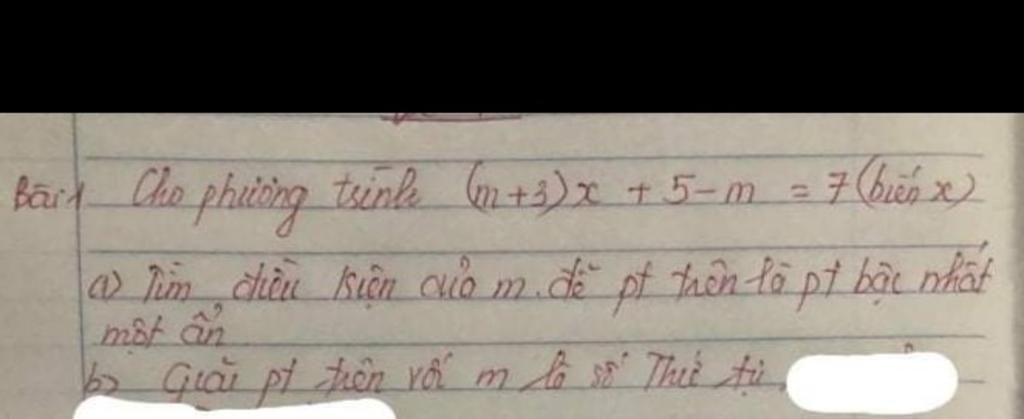 Bài 1 Cho phương trình (m+3)x + 5-m = 7 (biến x)
a) Tìm điều kiện của m để pt trên là pt bậc nhất
một ẩn
b) Giải pt trên với m là số Thứ tự